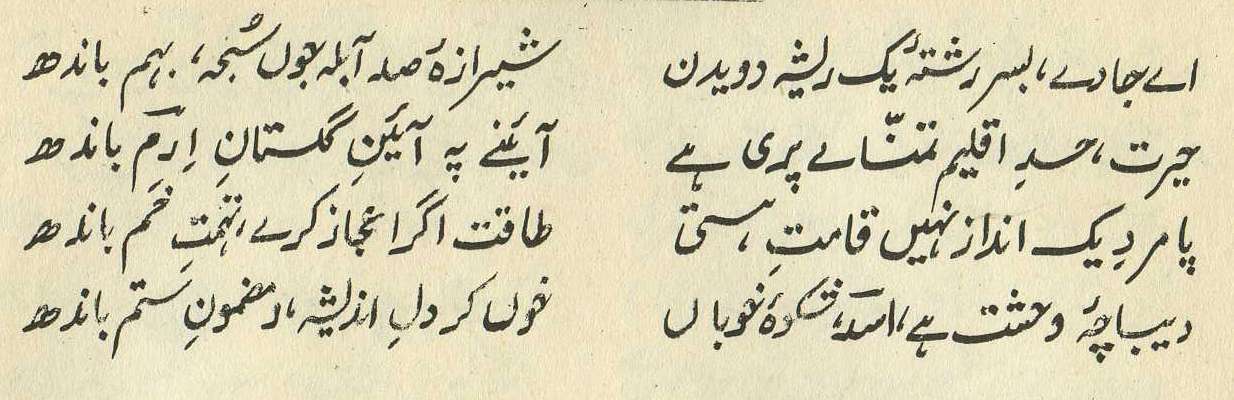 اے جادے، بسر رشتۂ یک ریشہ دویدن شیرازۂ صد آبلہ جوں سُبحہ، بہم باندھ
حیرت، حدِ اقلیم تمنّاے پری ہے آئینے پہ آئینِ گلستانِ اِرَم باندھ
پامردِ یک انداز نہیں قامتِ ہستی طاقت اگر اعجاز کرے، تہمتِ خَم باندھ
دیباچۂ وحشت ہے، اسدؔ، شکوۂ خوباں خوں کر دلِ اندیشہ، و مضمونِ ستم باندھ